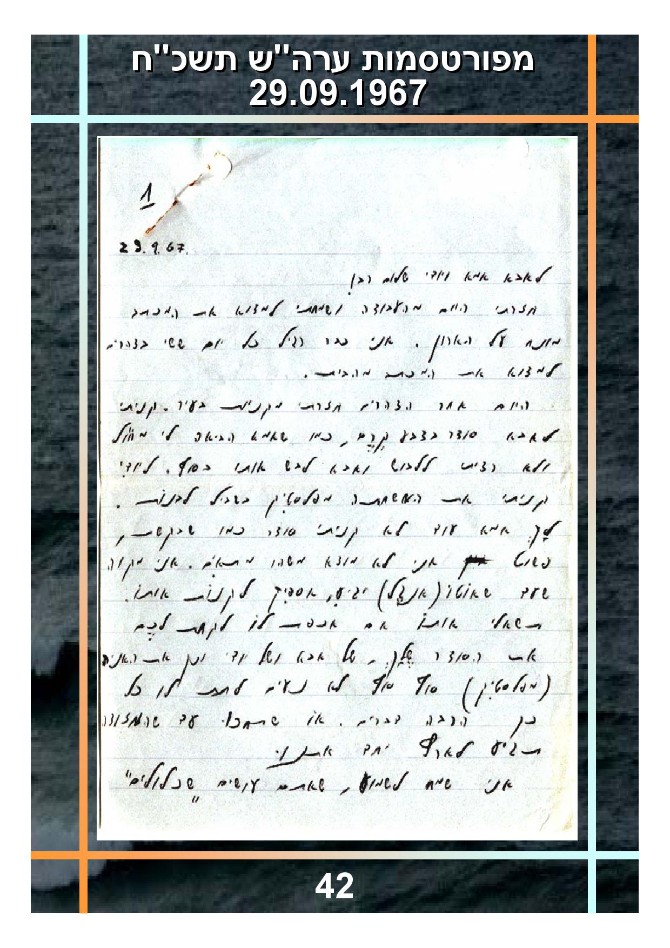 מפורטסמות ערה"ש תשכ"ח
29.09.1967
1
29.9.67.
לאבא אמא ויודי שלום רב!
חזרתי היום מהעבודה ושמחתי למצוא את המכתב
מונח על הארון. אני כבר רגיל כל יום ששי בצהרים
למצוא את המכתב מהבית.
היום אחר הצהרים חזרתי מקניות בעיר. קניתי
לאבא סודר בצבע קרם, כמו שאמא הביאה לי מחו"ל
ולא רציתי ללבוש ואבא לבש אותו בסוף. ליודי
קניתי את מפלסטיק בשביל לבנות.
לך אמא עוד לא קניתי סודר כמו שבקשת,
פשוט אני לא מוצא משהו מתאים. אני מקוה
שעד שאוטו (אנגל) יגיע, אספיק לקנות אותו.
תשאלי אותו אם אכפת לו לקחת לכם
את הסודר שלך, של אבא ושל יודי וכן את האניה
(מפלסטיק) סוף סוף לא נעים לתת לו כל
כך הרבה דברים. או שתחכו עד שהמזודה
תגיע לארץ יחד אתנו.
אני שמח לשמוע, שאתם עושים "שכלולים"
42